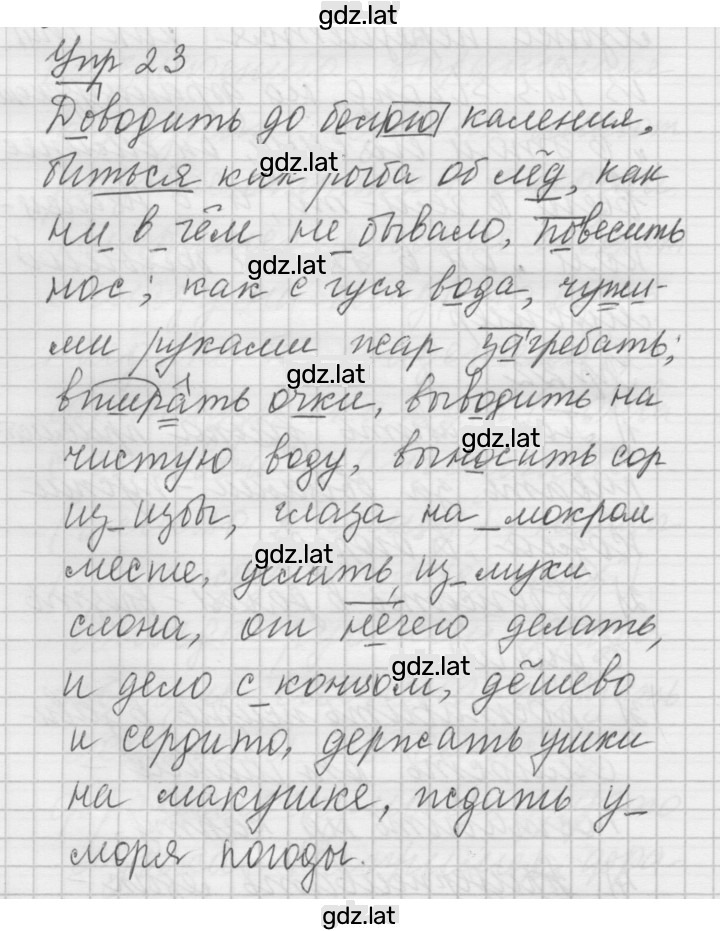 gdz.lat
Упр 23
Доводить до белого каления,
gdz.lat
биться как рыба об лёд, как
ни в чём не бывало, повесить
gdz.lat
нос; как с гуся вода, чужи-
ми руками жар загребать;
gdz.lat
втирать очки, выводить на
gdz.lat
чистую воду, выносить сор
из избы, глаза на мокром
gdz.lat
месте, делать из мухи
слона, от нечего делать,
gdz.lat
и дело с концом, дёшево
и сердито, держать ушки
на макушке, ждать у
моря погоды.
gdz.lat